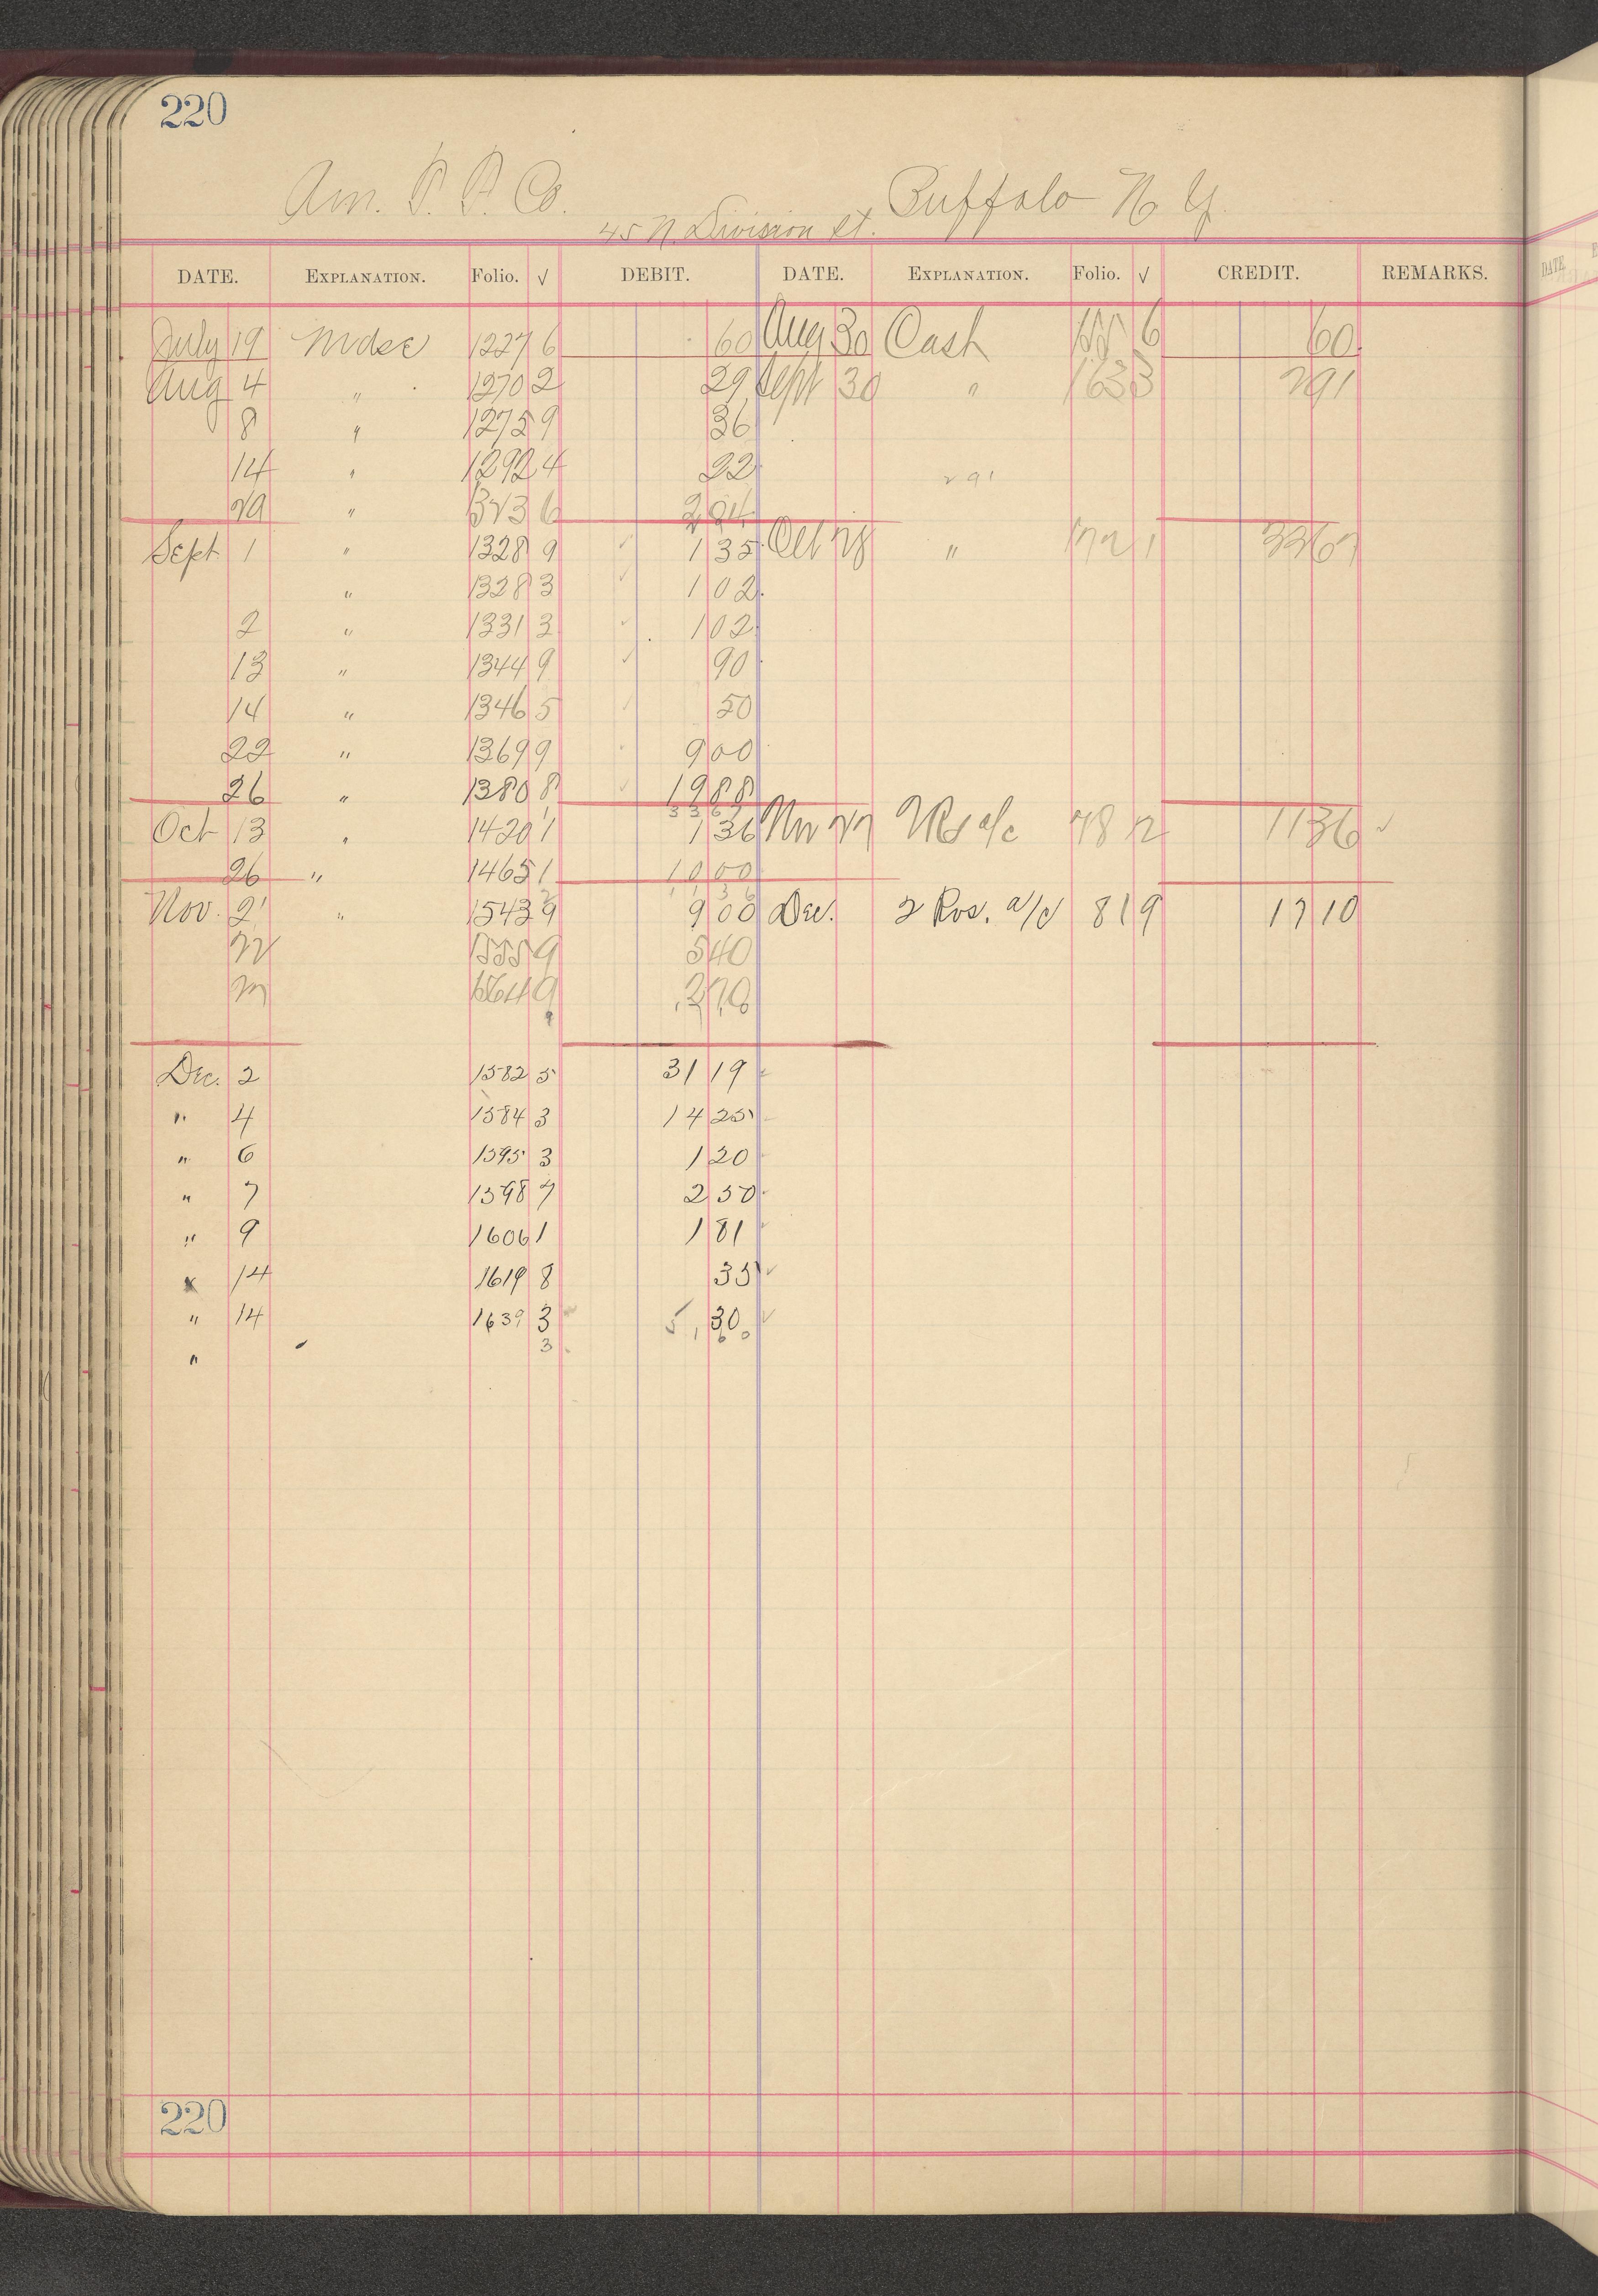 220
Am. P. P. Co. Buffalo N Y.
45 N. Division St.
DATE. EXPLANATION. Folio. √ DEBIT. DATE. EXPLANATION. Folio. √ CREDIT. REMARKS.
July 19 Mdse 1227 6 60 Aug 30 Cash 6 60
Aug 4 " 1270 2 29 Sept 30 " 163 3 291
8 " 1275 9 36
14 " 1292 4 22 291
29 " 6 204
Sept 1 " 1328 9 ✓ 1 35 Oct 28 " 172 1 3367
" 1328 3 ✓ 1 02
2 " 1331 3 ✓ 1 02
13 " 1344 9 ✓ 90
14 " 1346 5 ✓ 50
22 " 1369 9 9 00
26 " 1380 8 ✓ 19 88
33 67
Oct 13 " 1420 1 1 36 Nov 27 a/c 78 12 11 36 ✓
26 " 1465 1 10 00
11 36
Nov. 21 " 1543 9 9 00 Dec. 2 Ros. a/c 81 9 17 10
22 1555 9 5 40
27 9 2 70
Dec. 2 1582 5 31 19
" 4 1584 3 14 25
" 6 1595 3 1 20
" 7 1598 7 2 50
" 9 1606 1 1 81
" 14 1619 8 35 ✓
" 14 1639 3 30 ✓
3
"
220